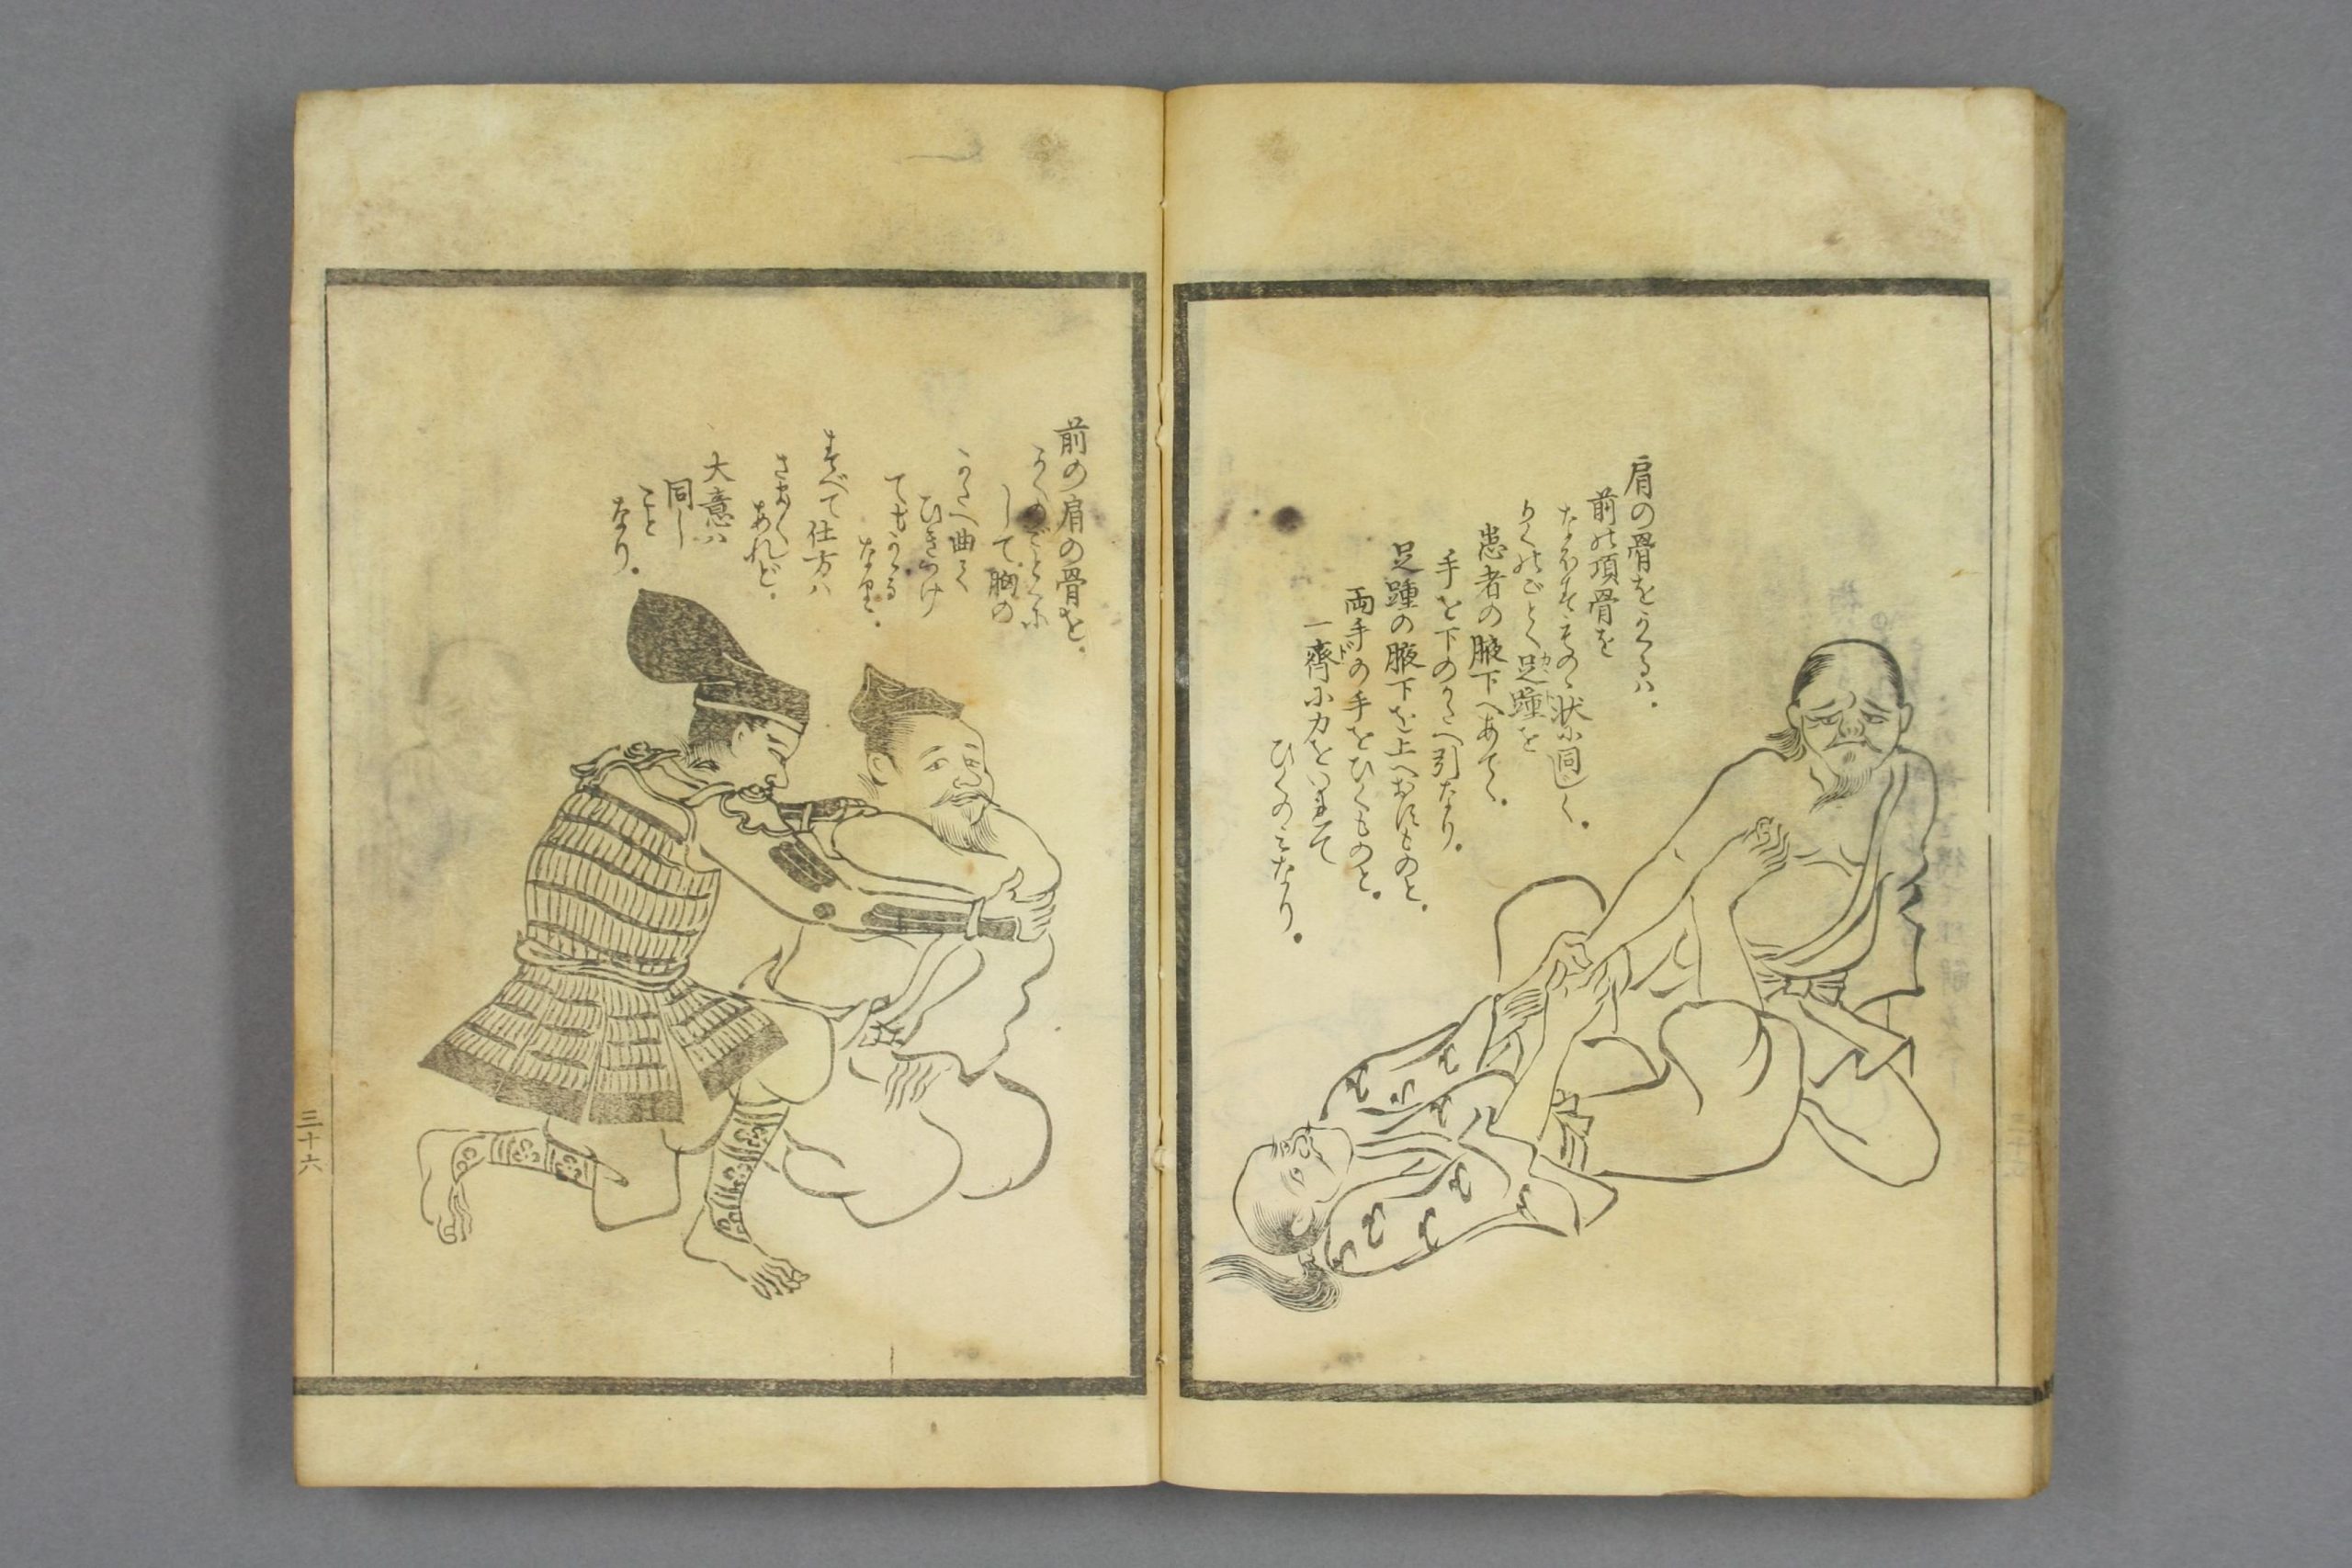 肩の骨をうくるハ.
前の頂骨を
なをすその状に同しく.
かくのごとく足踵を
患者の腋下へあてく.
手を下のかたへ引なり.
足踵の腋下を上へおすものと.
両手の手をひくものと.
一齊に力をいれて
ひくのミなり.
前の肩の骨を.
かくのごとくに
して胸の
かたへ曲く
ひきつけ
てもうくる
なり.
すべて仕方ハ
さま〳〵
あれど.
大意ハ
同し
こと
なり.
三十六